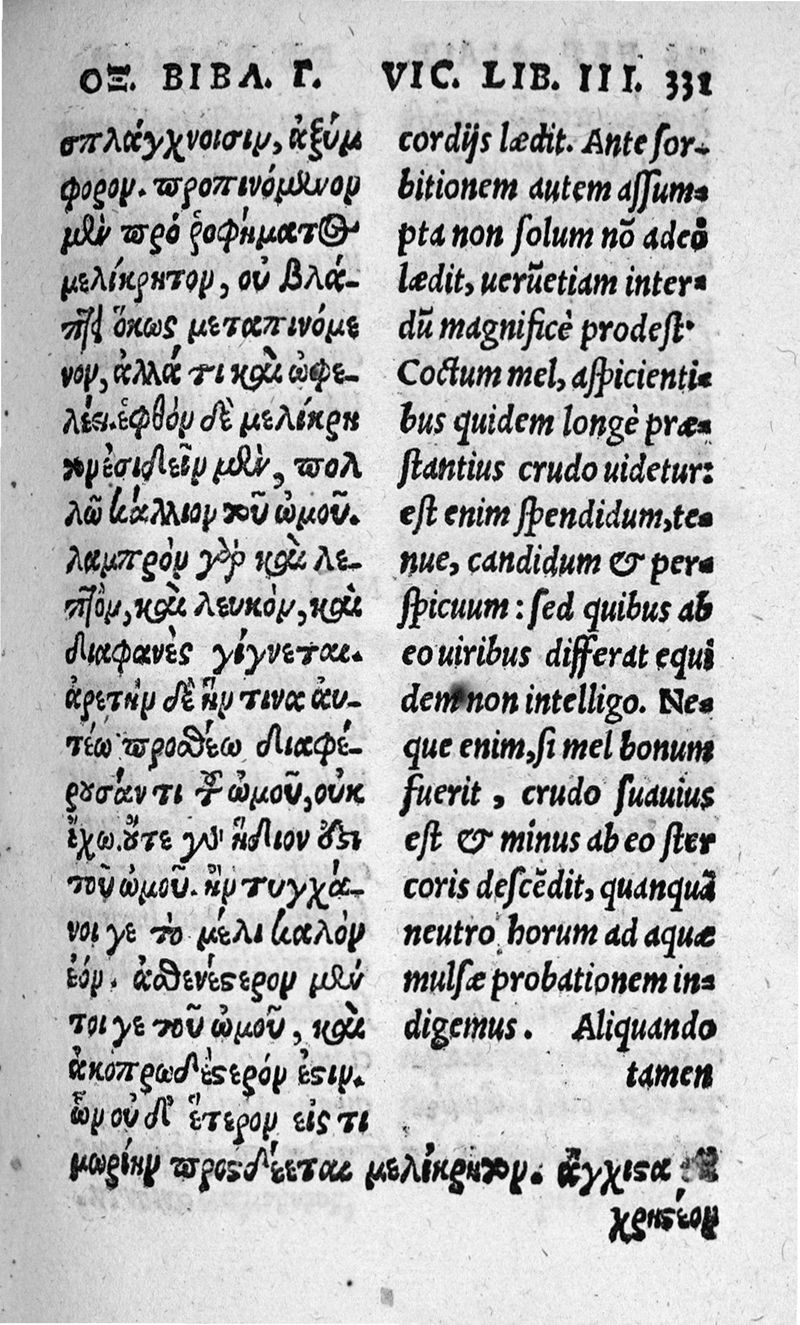 ΟΞ. ΒΙΒΛ. Γ.
σπλάγχνοισιν, ἀξύμ
φορον. προπινόμενον
μὲν πρὸ ῥοφήματος
μελίκρητον, οὐ βλά-
πτει ὅκως μεταπινόμε
νον, ἀλλά τι καὶ ὠφε-
λέει. ἑφθὸν δὲ μελίκρη
τον ἐσιδεῖν μὲν, πολ
λῶ κάλλιον τοῦ ὠμοῦ.
λαμπρὸν γὰρ καὶ λε-
πτὸν, καὶ λευκὸν, καὶ
διαφανὲς γίγνεται.
ἀρετὴν δὲ ἥν τινα ἀυ-
τέω προσθέω διαφέ-
ρουσάν τι τοῦ ὠμοῦ, οὐκ
ἔχω. οὔτε γὰρ ἥδιον ὅτι
τοῦ ὠμοῦ. ἢν τυγχά-
νοι γε τὸ μέλι καλὸν
ἐόν. ἀσθενέστερον μὲν
τοι γε τοῦ ὠμοῦ, καὶ
ἀκοπρωδέστερόν ἐστιν.
ὧν οὐδ' ἕτερον εἰς τι
μωρίην προσδέεται μελίκρητον. ἄγχιστα
χρηστέον
VIC. LIB. III. 331
cordijs lædit. Ante sor-
bitionem autem assum-
pta non solum nõ adeo
lædit, uerũetiam inter-
dũ magnificè prodest.
Coctum mel, aspicienti-
bus quidem longè præ-
stantius crudo uidetur:
est enim spendidum, te-
nue, candidum & per-
spicuum: sed quibus ab
eo uiribus differat equi
dem non intelligo. Ne-
que enim, si mel bonum
fuerit, crudo suauius
est & minus ab eo ster
coris descẽdit, quanquã
neutro horum ad aquæ
mulsæ probationem in-
digemus. Aliquando
tamen